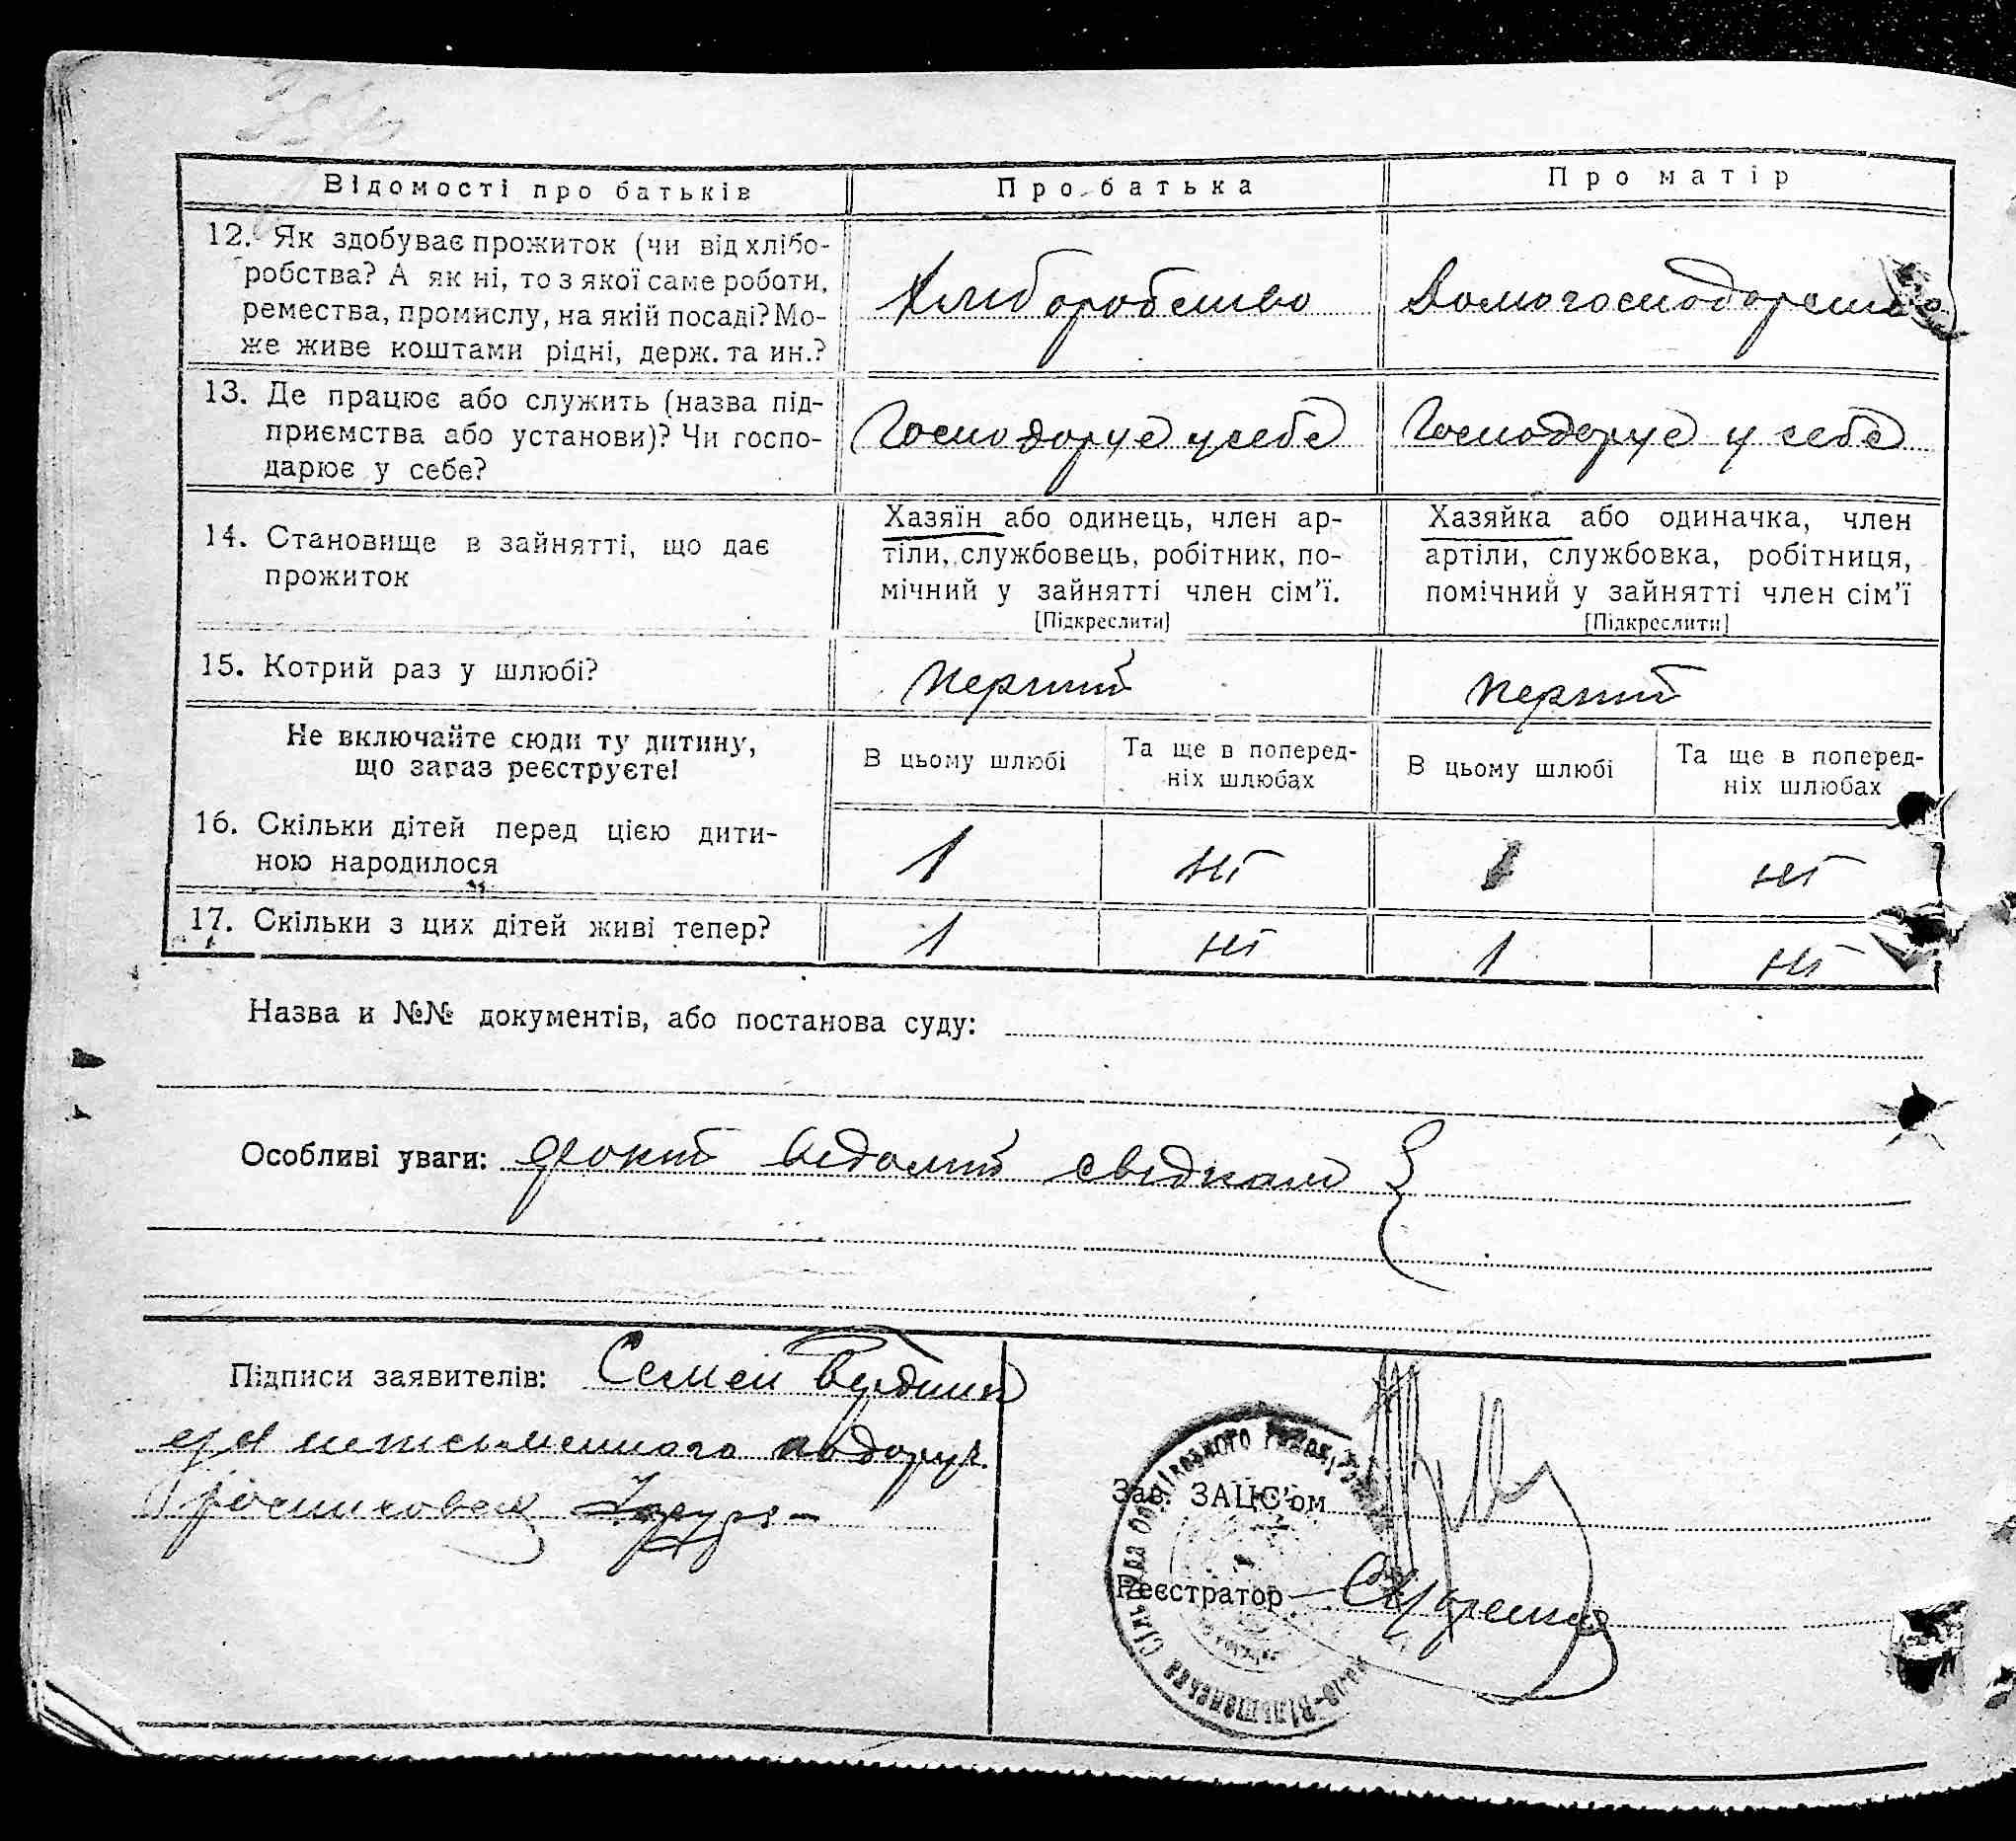 Відомості про батьків Про батька Про матір
12. Як здобуває прожиток (чи від хлібо-
робства? А як ні, то з якої саме роботи,
ремества, промислу, на якій посаді? Мо-
же живе коштами рідні, держ. та ин.?
Хліборобство Домогосподарство
13. Де працює або служить (назва під-
приємства або установи)? Чи госпо-
дарює у себе?
Господарує у себе Господарує у себе
14. Становище в зайнятті, що дає
прожиток
Хазяїн або одинець, член ар-
тіли, службовець, робітник, по-
мічний у зайнятті член сім'ї.
[Підкреслити]
Хазяйка або одиначка, член
артіли, службовка, робітниця,
помічний у зайнятті член сім'ї
[Підкреслити]
15. Котрий раз у шлюбі? перший перший
Не включайте сюди ту дитину,
що зараз реєструєте!
В цьому шлюбі Та ще в поперед-
ніх шлюбах
В цьому шлюбі Та ще в поперед-
ніх шлюбах
16. Скільки дітей перед цією дити-
ною народилося
1 ні 1 ні
17. Скільки з цих дітей живі тепер? 1 ні 1 ні
Назва и №№ документів, або постанова суду:
Особливі уваги: факт відомий свідкам
Підписи заявителів: Семен
неписьменного
Зав. ЗАЦС'ом
Реєстратор